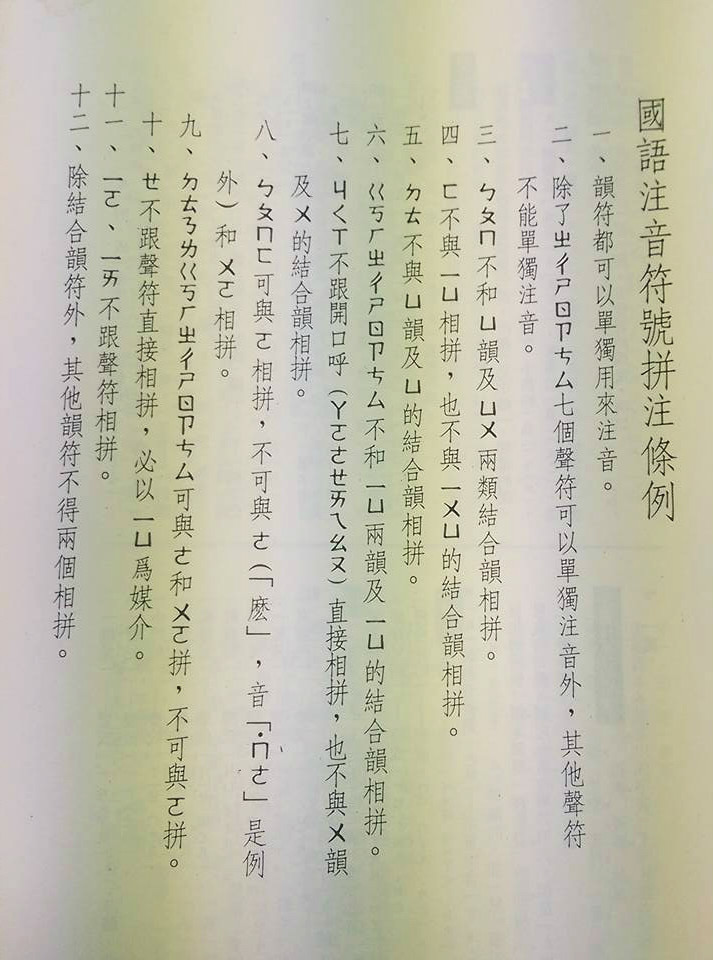 國語注音符號拼注條例
一、韻符都可以單獨用來注音。
二、除了ㄓㄔㄕㄖㄗㄘㄙ七個聲符可以單獨注音外，其他聲符
不能單獨注音。
三、ㄅㄆㄇ不和ㄩ韻及ㄩㄨ兩類結合韻相拼。
四、ㄈ不與ㄧㄩ相拼，也不與ㄧㄨㄩ的結合韻相拼。
五、ㄉㄊ不與ㄩ韻及ㄩ的結合韻相拼。
六、ㄍㄎㄏㄓㄔㄕㄖㄗㄘㄙ不和ㄧㄩ兩韻及ㄧㄩ的結合韻相拼。
七、ㄐㄑㄒ不跟開口呼（ㄚㄛㄜㄝㄞㄟㄠㄡ）直接相拼，也不與ㄨ韻
及ㄨ的結合韻相拼。
八、ㄅㄆㄇㄈ可與ㄛ相拼，不可與ㄜ（「麼」，音「˙ㄇㄜ」是例
外）和ㄨㄛ相拼。
九、ㄉㄊㄋㄌㄍㄎㄏㄓㄔㄕㄖㄗㄘㄙ可與ㄜ和ㄨㄛ拼，不可與ㄛ拼。
十、ㄝ不跟聲符直接相拼，必以ㄧㄩ爲媒介。
十一、ㄧㄛ、ㄧㄞ不跟聲符相拼。
十二、除結合韻符外，其他韻符不得兩個相拼。